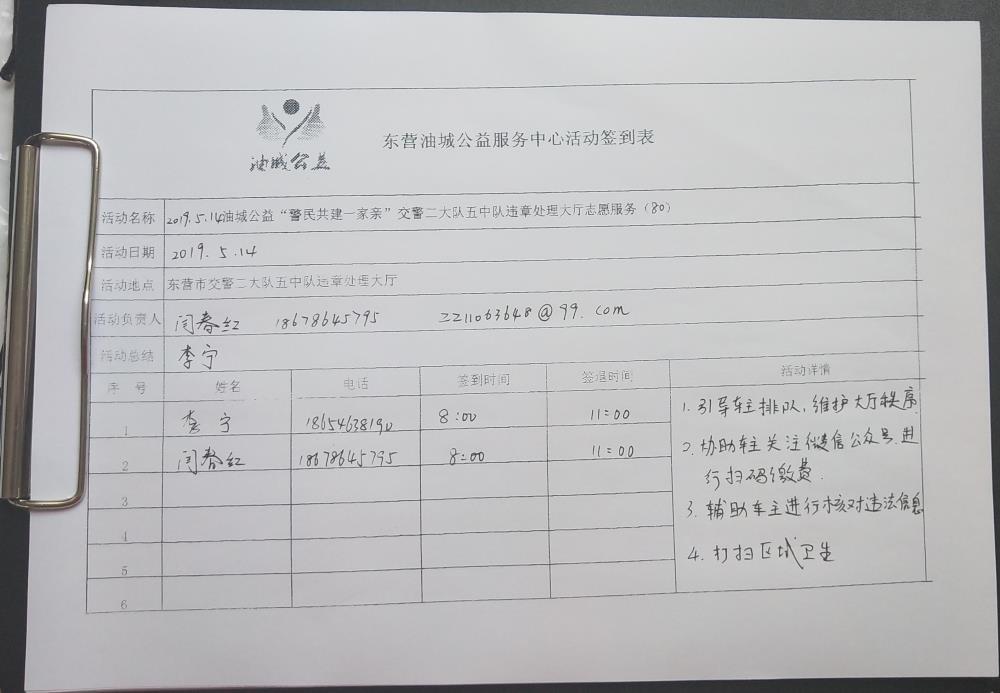 油城公益
东营油城公益服务中心活动签到表
活动名称 2019.5.14油城公益“警民共建一家亲”交警二大队五中队违章处理大厅志愿服务（80）
活动日期 2019.5.14
活动地点 东营市交警二大队五中队违章处理大厅
活动负责人 闫春红 18678645795 2211063648@99.com
活动总结 李宁
序号 姓名 电话 签到时间 签退时间 活动详情
1 李宁 18654638190 8:00 11:00
2 闫春红 18678645795 8:00 11:00
3
4
5
6
1. 引导车主排队,维护大厅秩序
2. 协助车主关注微信公众号,进
行扫码缴费.
3. 辅助车主进行核对违法信息
4. 打扫区域卫生